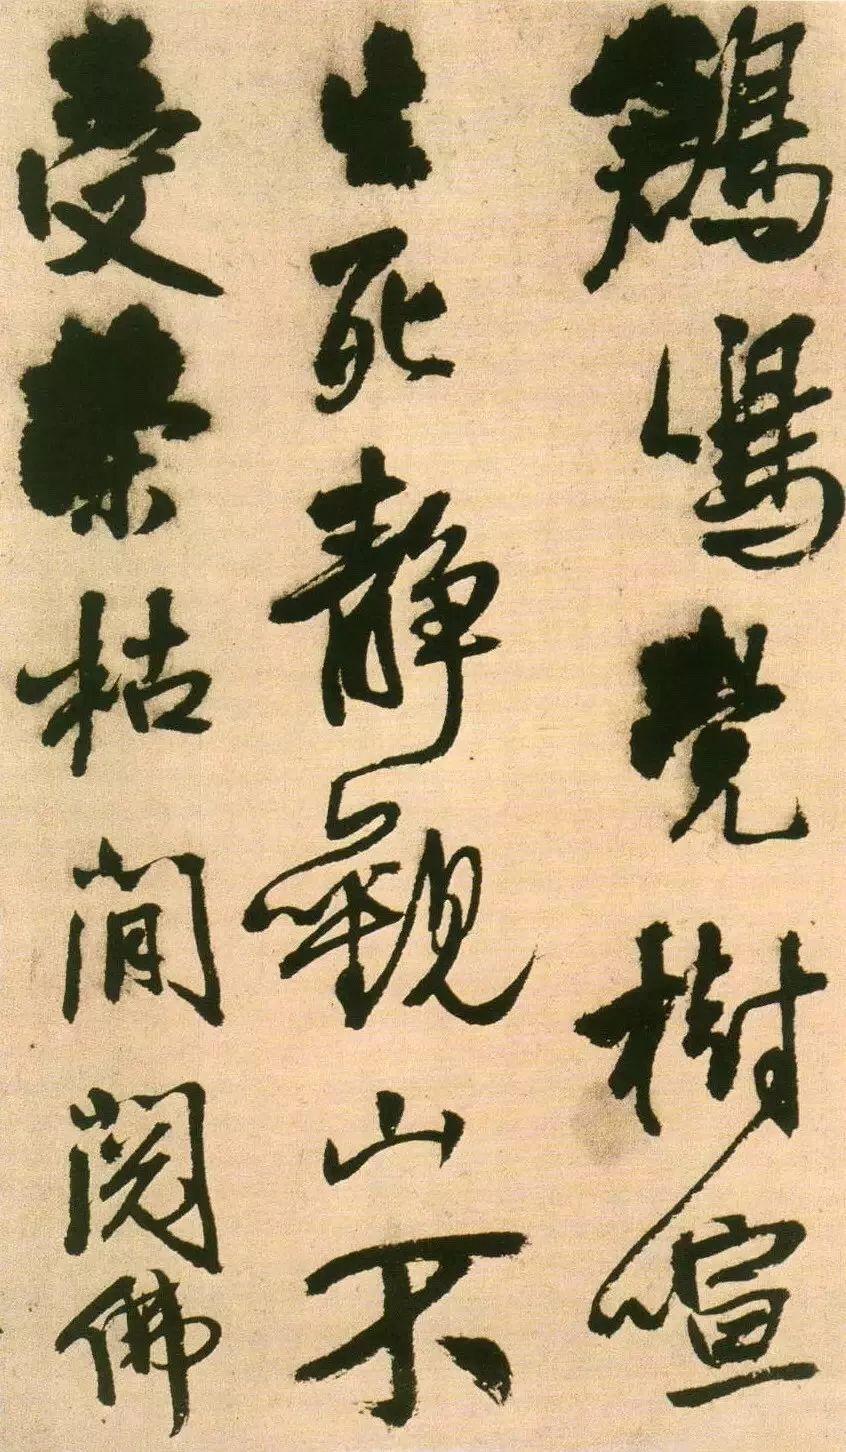 鳴覺樹喧
生死靜觀山不
受榮枯閒閱佛